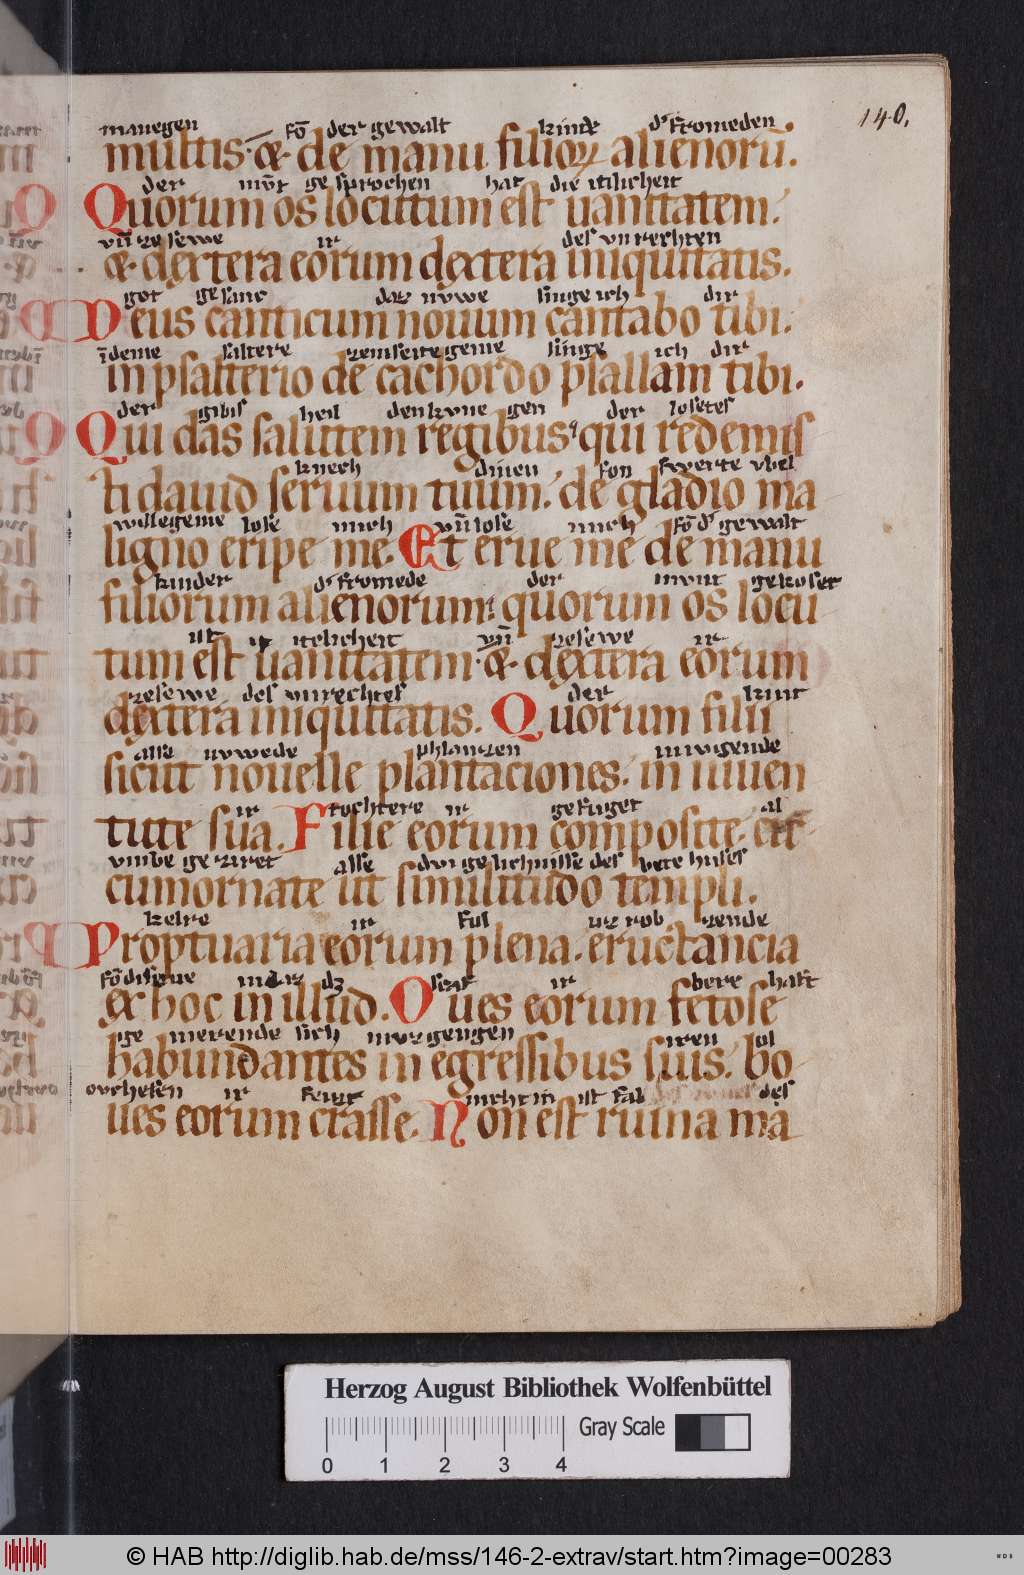 140.
manegen fō der gewalt kinde d' fromeden
multis· & de manu filioꝝ alienorū.
der mūt gesprochen hat die itilicheit
Quorum os locutum est uanitatem.
vn̄ zesewe ir des vnrechten
& dextera eorum dextera iniquitatis.
got gesanc daz nvwe singe ich dir
Deus canticum nouum cantabo tibi.
īdeme saltere zemseitegeme singe ich dir
in psalterio de cachordo psallam tibi.
der gibis heil den kvne gen der losetes
Qui das salutem regibus qui redemis
knech dinen fon swerte vbel
ti dauid seruum tuum. de gladio ma
willegeme lose mich vn̄ lose mich fō d' gewalt
ligno eripe me. Et erue me de manu
kinder d' fromede der mvnt gekoset
filiorum alienorum. quorum os locu
ist ir itelicheit vn̄ zesewe ir
tum est uanitatem· & dextera eorum
zesewe des vnrechtes der kint
dextera iniquitatis. Quorum filii
alse nvwede phlanzen in ivgende
sicut nouelle plantaciones. in iuuen
ir tochtere ir gefuget al
tute sua. Filie eorum composite. cir
vmbe geziret alse dvi gelichnisse des bete huses
cumornate ut similitudo templi.
kelre ir ful zende
Proptuaria eorum plena. eructancia
fō diseme in daz
ex hoc in illud. Oues eorum fetose
ir bere haft
ige merende sich in vz gengen iren ol
habundantes in egressibus suis. bo
ovrhesen ir feizt nicht in ist fal des
ues eorum crasse. Non est ruina ma
Herzog August Bibliothek Wolfenbüttel
Gray Scale
0 1 2 3 4
© HAB http://diglib.hab.de/mss/146-2-extrav/start.htm?image=00283